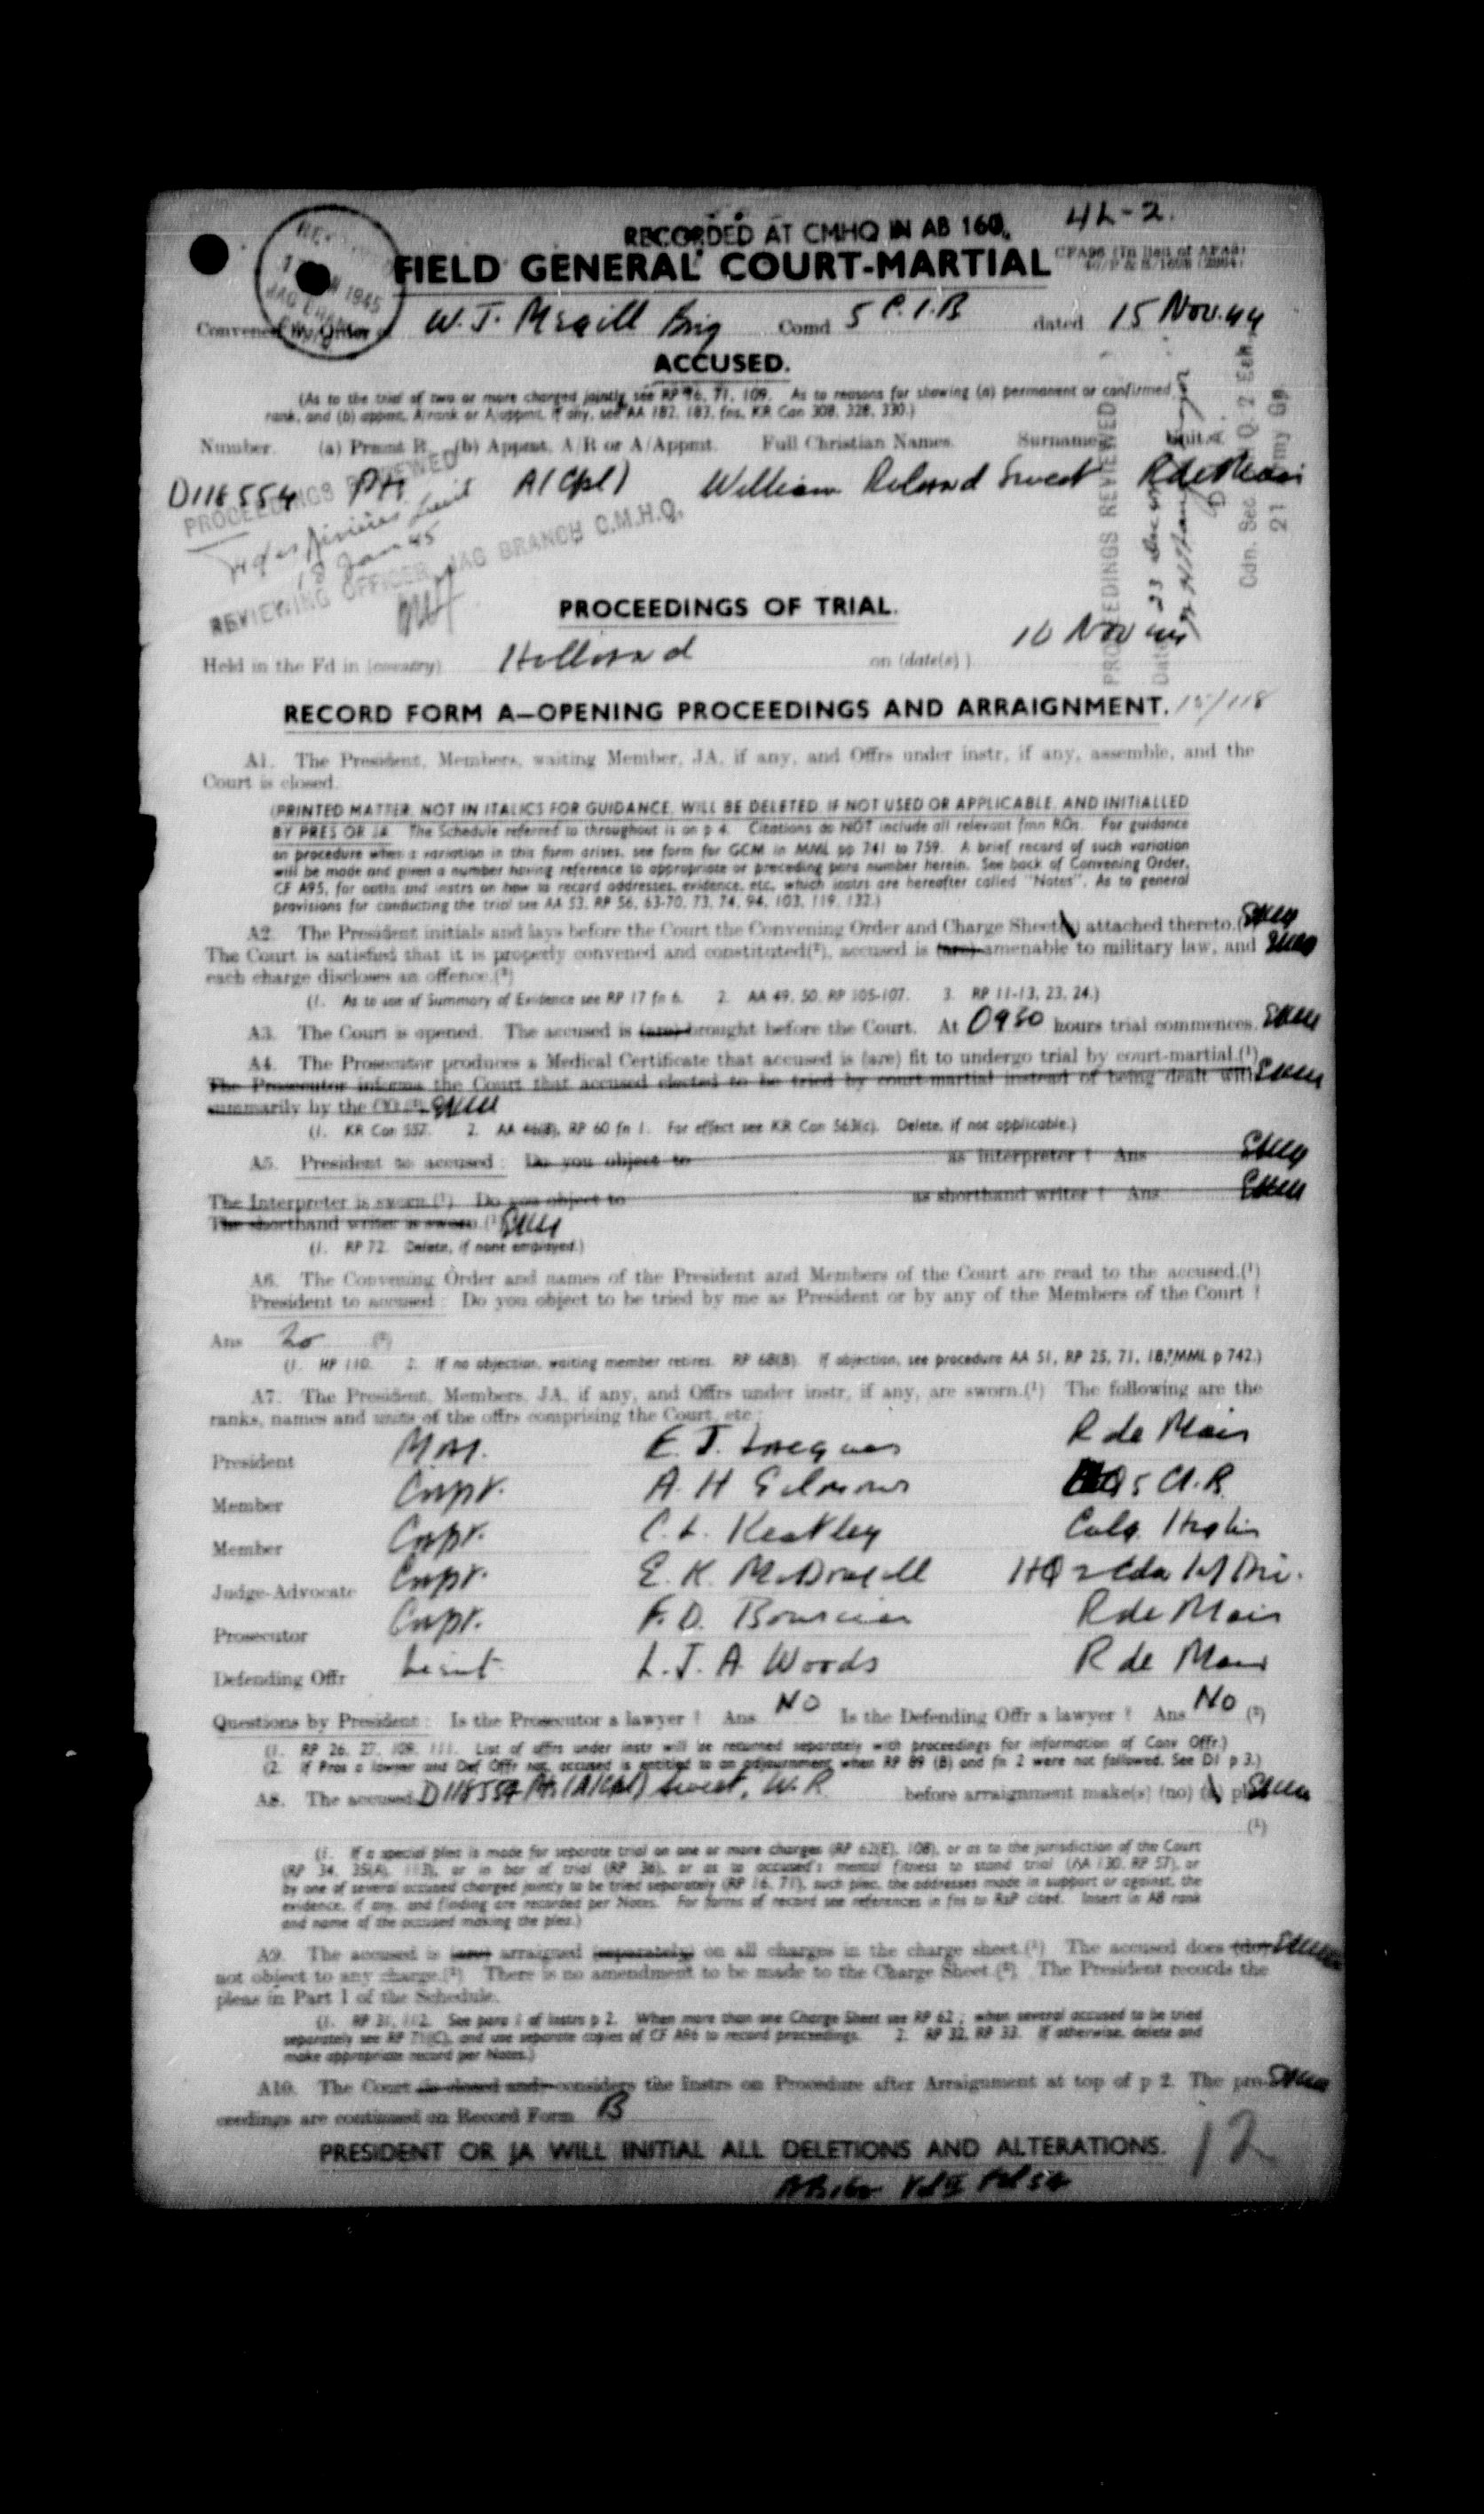 RECORDED AT CMHQ IN AB 160.
4L-2.
FIELD GENERAL COURT-MARTIAL
1945
Convened by Order of W. J. Megill Brig Comd 5 C.I.B dated 15 Nov. 44
ACCUSED.
(As to the trial of two or more charged jointly see RP 16, 71, 109. As to reasons for showing (a) permanent or confirmed
rank, and (b) appmt, A/rank or A/appmt, if any, see AA 182, 183, fns, KR Can 308, 328, 330.)
Number. (a) Prmnt R. (b) Appmt, A/R or A/Appmt. Full Christian Names. Surname. Unit.
D118554 Pte A/(Cpl) William Roland Sweet R de Mais
PROCEEDINGS REVIEWED
18 Jan 45
REVIEWING OFFICER, JAG BRANCH C.M.H.Q.
PROCEEDINGS REVIEWED
Cdn. Sec. H.Q. 2 Ech.
21 Army Gp
PROCEEDINGS OF TRIAL.
Held in the Fd in (country) Holland on (date(s)) 16 Nov 44
RECORD FORM A—OPENING PROCEEDINGS AND ARRAIGNMENT.
A1. The President, Members, waiting Member, JA, if any, and Offrs under instr, if any, assemble, and the
Court is closed.
(PRINTED MATTER, NOT IN ITALICS FOR GUIDANCE, WILL BE DELETED, IF NOT USED OR APPLICABLE, AND INITIALLED
BY PRES OR JA. The Schedule referred to throughout is on p 4. Citations do NOT include all relevant fmn ROs. For guidance
on procedure when a variation in this form arises, see form for GCM in MML pp 741 to 759. A brief record of such variation
will be made and given a number having reference to appropriate or preceding para number herein. See back of Convening Order,
CF A95, for oaths and instrs on how to record addresses, evidence, etc, which instrs are hereafter called "Notes". As to general
provisions for conducting the trial see AA 53, RP 56, 63-70, 73, 74, 94, 103, 119, 132.)
A2. The President initials and lays before the Court the Convening Order and Charge Sheet(s) attached thereto.(¹)
The Court is satisfied that it is properly convened and constituted(²), accused is (are) amenable to military law, and
each charge discloses an offence.(³)
(1. As to use of Summary of Evidence see RP 17 fn 6. 2. AA 49, 50, RP 105-107. 3. RP 11-13, 23, 24.)
A3. The Court is opened. The accused is (are) brought before the Court. At 0930 hours trial commences.
A4. The Prosecutor produces a Medical Certificate that accused is (are) fit to undergo trial by court-martial.(¹)
The Prosecutor informs the Court that accused elected to be tried by court-martial instead of being dealt with
summarily by the CO.(²)
(1. KR Can 557. 2. AA 46(8), RP 60 fn 1. For effect see KR Can 563(c). Delete, if not applicable.)
A5. President to accused: Do you object to as interpreter? Ans
The Interpreter is sworn.(¹) Do you object to as shorthand writer? Ans
The shorthand writer is sworn.(¹)
(1. RP 72. Delete, if none employed.)
A6. The Convening Order and names of the President and Members of the Court are read to the accused.(¹)
President to accused: Do you object to be tried by me as President or by any of the Members of the Court?
Ans No (²)
(1. RP 110. 2. If no objection, waiting member retires. RP 68(B). If objection, see procedure AA 51, RP 25, 71, 18, MML p 742.)
A7. The President, Members, JA, if any, and Offrs under instr, if any, are sworn.(¹) The following are the
ranks, names and units of the offrs comprising the Court, etc:
President Maj. E. J. R de Mais
Member Capt. A. H HQ 5
Member Capt. C. L. Keatley Calg. Highrs
Judge-Advocate Capt. E. K. McDougall HQ 2 Cdn Inf Div.
Prosecutor Capt. F. D. Boursier R de Mais
Defending Offr Lieut. L. J. A Woods R de Mais
Questions by President: Is the Prosecutor a lawyer? Ans No Is the Defending Offr a lawyer? Ans No (²)
(1. RP 26, 27, 109, 111. List of offrs under instr will be returned separately with proceedings for information of Conv Offr.)
(2. If Pros a lawyer and Def Offr not, accused is entitled to an adjournment when RP 89 (B) and fn 2 were not followed. See D1 p 3.)
A8. The accused D118554 Pte (A/Cpl) Sweet, W. R. before arraignment make(s) (no) (a)
(¹)
(1. If a special plea is made for separate trial on one or more charges (RP 62(E), 108), or as to the jurisdiction of the Court
(RP 34, 35(A), 113), or in bar of trial (RP 36), or as to accused's mental fitness to stand trial (AA 130, RP 57), or
by one of several accused charged jointly to be tried separately (RP 16, 71), such plea, the addresses made in support or against, the
evidence, if any, and finding are recorded per Notes. For forms of record see references in fns to RsP cited. Insert in A8 rank
and name of the accused making the plea.)
A9. The accused is (are) arraigned (separately) on all charges in the charge sheet.(¹) The accused does (do)
not object to any charge.(²) There is no amendment to be made to the Charge Sheet.(²) The President records the
pleas in Part 1 of the Schedule.
(1. RP 31, 112. See para 1 of Instrs p 2. When more than one Charge Sheet see RP 62; when several accused to be tried
separately see RP 71(C), and use separate copies of CF A96 to record proceedings. 2. RP 32, RP 33. If otherwise, delete and
make appropriate record per Notes.)
A10. The Court (is closed and) considers the Instrs on Procedure after Arraignment at top of p 2. The pro-
ceedings are continued on Record Form B
PRESIDENT OR JA WILL INITIAL ALL DELETIONS AND ALTERATIONS.
12